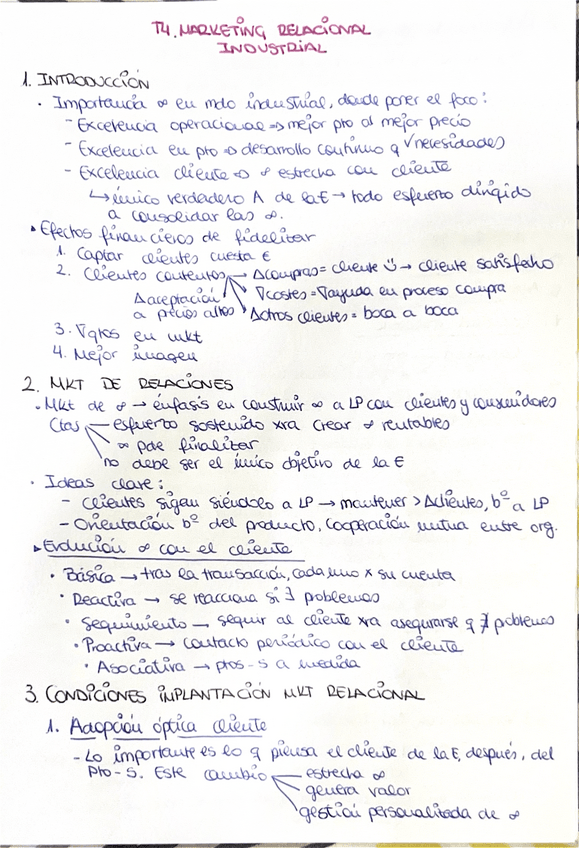 T4. MARKETING RELACIONAL
INDUSTRIAL
1. INTRODUCCIÓN
· Importancia ∞ en mdo industrial, donde poner el foco:
- Excelencia operacional ⇒ mejor pto al mejor precio
- Excelencia en pto ⇒ desarrollo continuo q √necesidades
- Excelencia cliente ⇒ ∞ estrecha con cliente
↳ único verdadero Λ de la E → todo esfuerzo dirigido
a consolidar las ∞.
▸ Efectos financieros de fidelizar
1. Captar clientes cuesta €
2. Clientes contentos → Δcompras = cliente ☺ → cliente satisfecho
Δaceptación ∇costes = ∇ayuda en proceso compra
a precios altos Δotros clientes = boca a boca
3. ∇gtos en mkt
4. Mejor imagen
2. MKT DE RELACIONES
· Mkt de ∞ → énfasis en construir ∞ a LP con clientes y consumidores
Ctas esfuerzo sostenido xra crear ∞ rentables
∞ pde finalizar
no debe ser el único objetivo de la E
· Ideas clave:
- Clientes sigan siéndolo a LP → mantener > Δclientes, bº a LP
- Orientación bº del producto, Cooperación mutua entre org.
▸ Evolución ∞ con el cliente
· Básica → tras la transacción, cada uno x su cuenta
· Reactiva → se reacciona si ∃ problemas
· Seguimiento → seguir al cliente xra asegurarse q ∄ problemas
· Proactiva → contacto periódico con el cliente
· Asociativa → ptos-s a medida
3. CONDICIONES IMPLANTACIÓN MKT RELACIONAL
1. Adopción óptica cliente
- Lo importante es lo q piensa el cliente de la E, después, del
pto-s. Este cambio estrecha ∞
genera valor
gestión personalizada de ∞